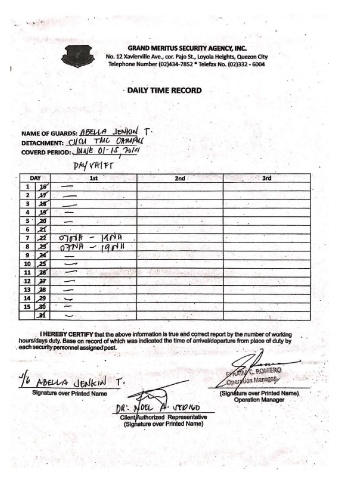 GRAND MERITUS SECURITY AGENCY, INC.
No. 12 Xavierville Ave., cor. Pajo St., Loyola Heights, Quezon City
Telephone Number (02)434-7852 * Telefax No. (02)332 - 6004
DAILY TIME RECORD
NAME OF GUARDS: ABELLA JENKIN T.
DETACHMENT: TMC
COVERD PERIOD: JUNE 01-15,
DAYSHIFT
DAY 1st 2nd 3rd
1 16 —
2 17 —
3 18 —
4 19 —
5 20 —
6 21 —
7 22 07NH - 19NH
8 23 07NH - 19NH
9 24 —
10 25 —
11 26 —
12 27 —
13 28 —
14 29 —
15 30 —
31 —
I HEREBY CERTIFY that the above information is true and correct report by the number of working
hours/days duty. Base on record of which was indicated the time of arrival/departure from place of duty by
each security personnel assigned post.
ROMERO
Operation Manager
ABELLA JENKIN T.
Signature over Printed Name
(Signature over Printed Name)
Operation Manager
DR. NOEL A.
Client/Authorized Representative
(Signature over Printed Name)